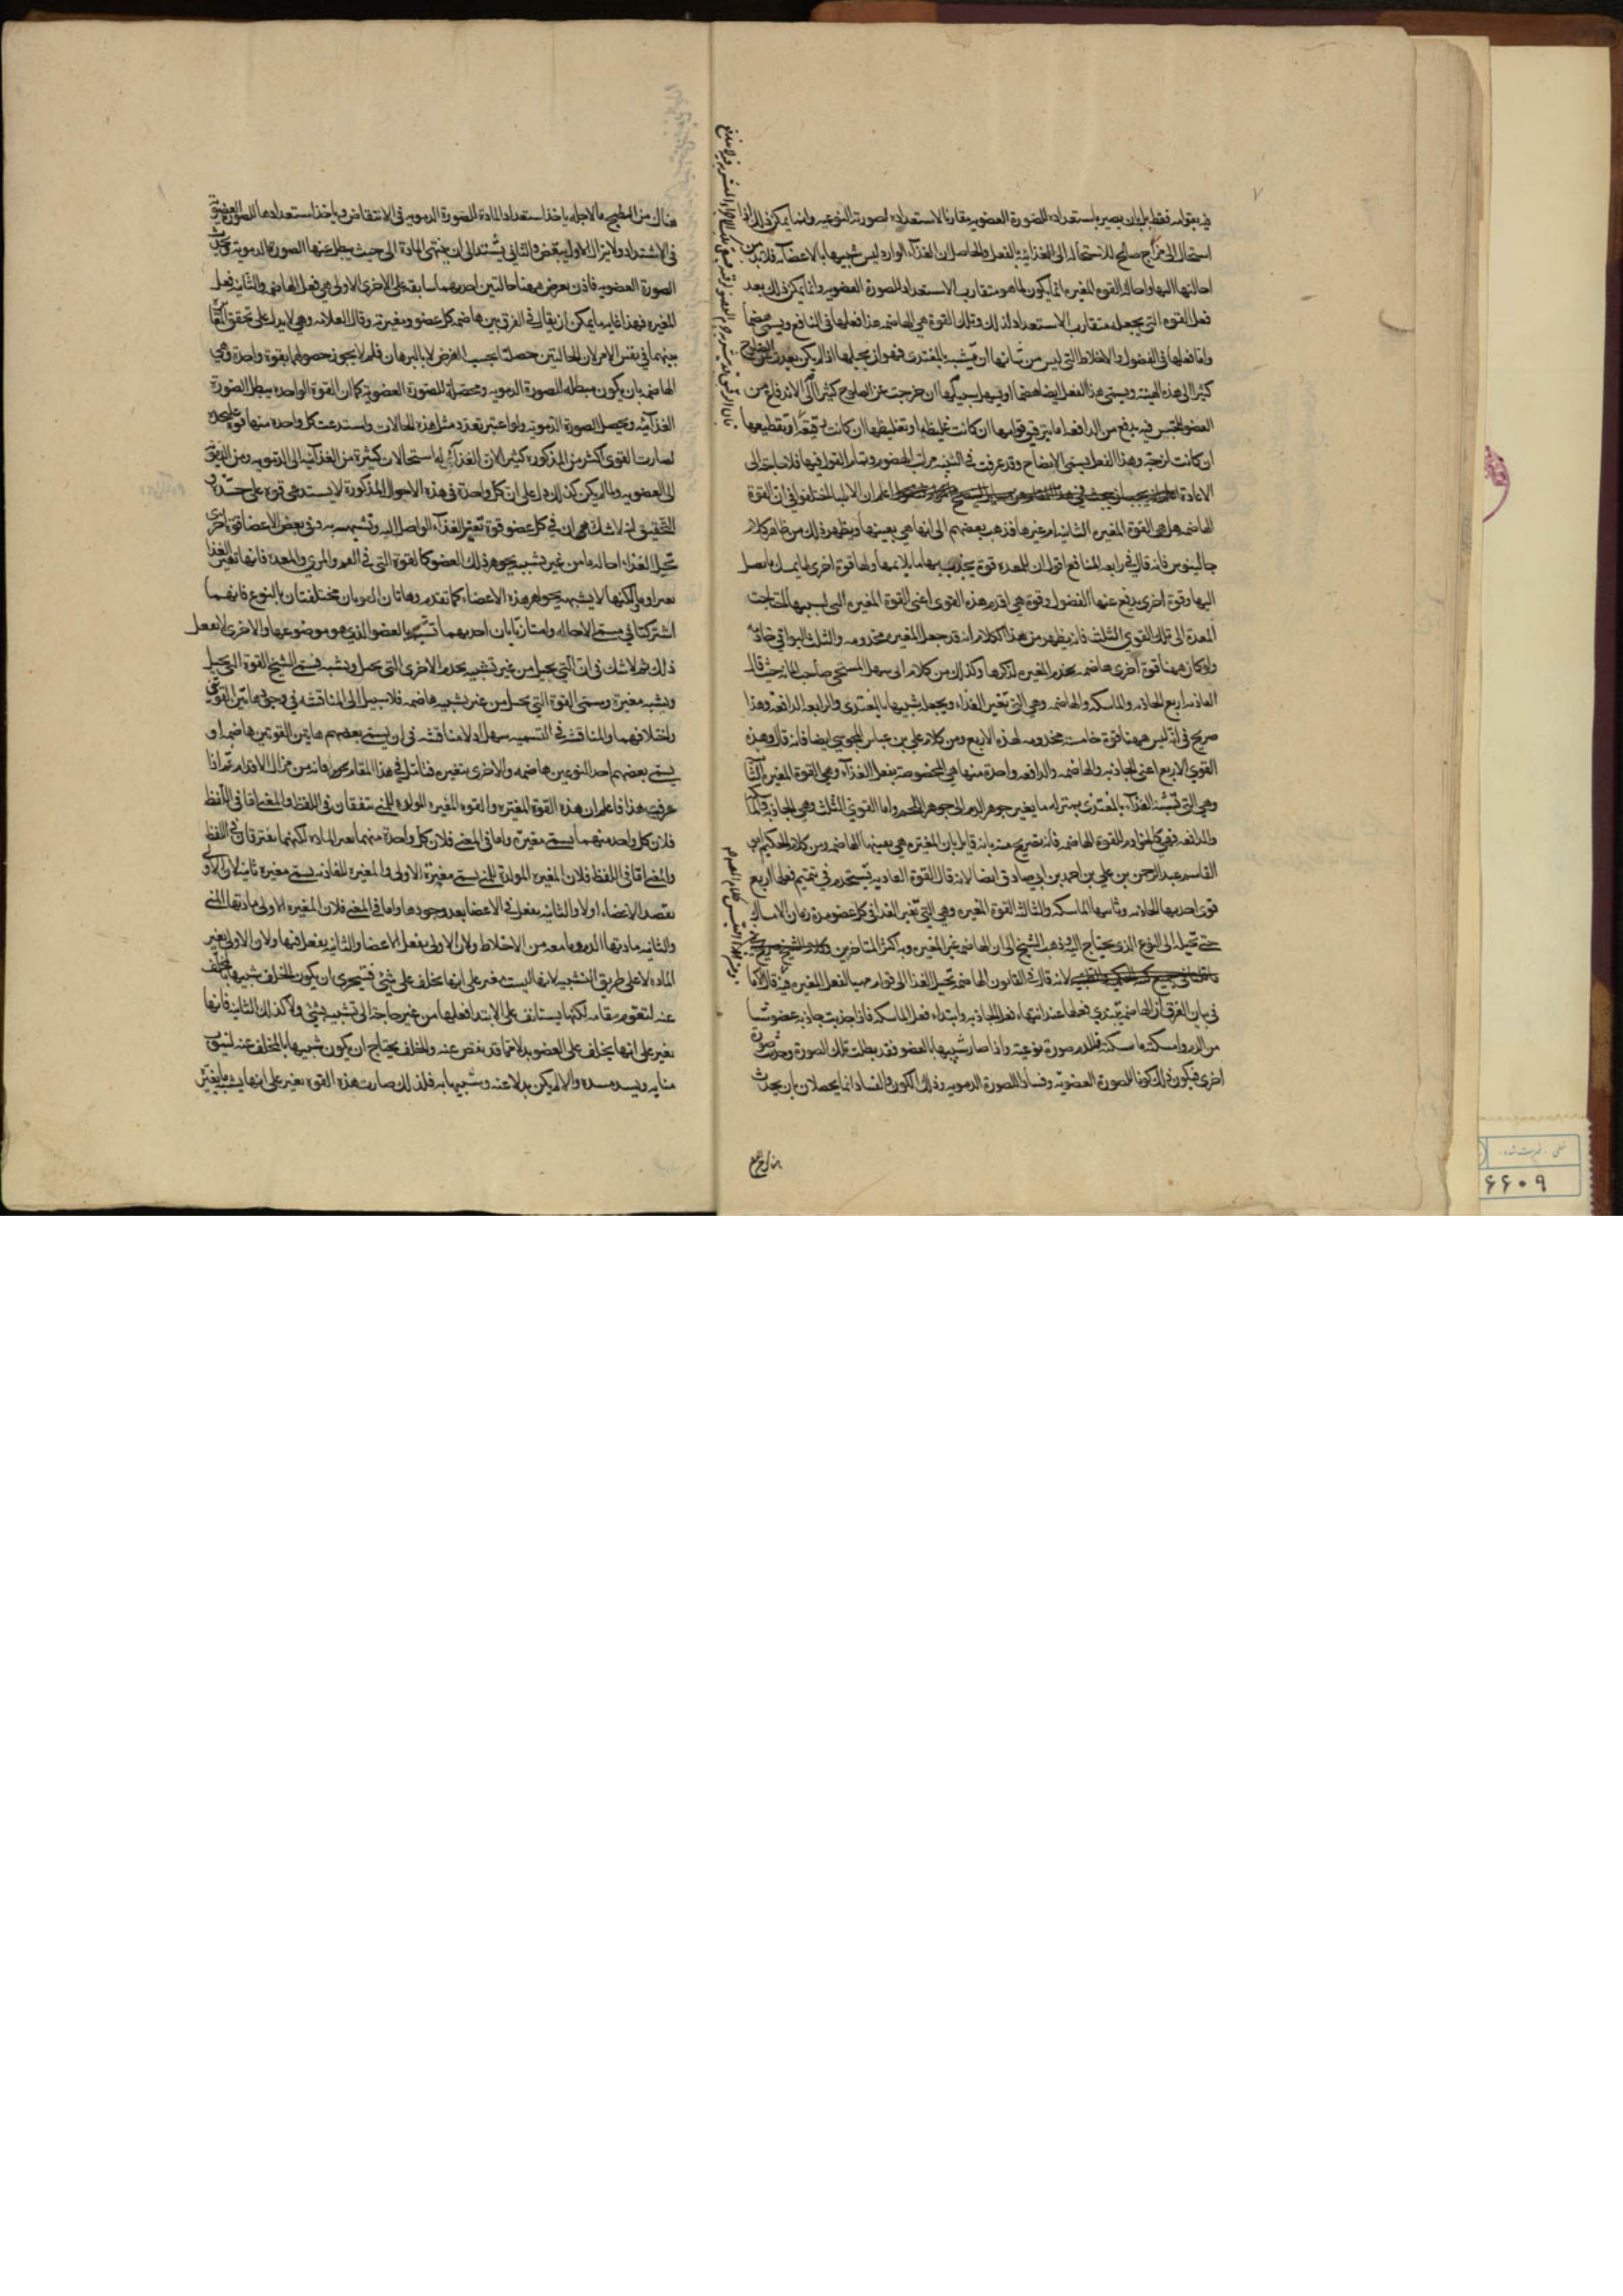 فيه بقوامه فقط بل بان يصير باستعداده للصورة العضويه مقارنا لاستعداده لصورته النوعيه وانما يمكن ذلك اذا
استحال الى مزاج صالح للاستحاله الى الغذائية بالفعل والحاصل ان الغذاء الوارد ليس شبيها بالاعضاء فلابد من
احالتها اليها واحالة القوه المغيره انما يكون لما هو متقارب الاستعداد للصورة العضويه وانما يكن ذلك بعد
فعل القوه التي يجعله متقارب الاستعداد لذلك وتلك القوة هي الهاضمه هذا فعلها في النافع ويسمى هضما
واما فعلها في الفضول والاخلاط التي ليس من شانها ان يتشبه بالمغتدى فهو ان يحيلها اذا لم يكن بعدت عن الصلوح
كثيرا الى هذه الهيئه ويسمى هذا الفعل ايضا هضما او يسهل سبيلها ان خرجت عن الصلوح كثيرا الى الاندفاع من
العضو المحتبس فيه بدفع من الدافعه اما بترقيق قوامها ان كانت غليظه او تغليظها ان كانت رقيقة او تقطيعها
ان كانت لزجة وهذا الفعل يسمى الانضاج وقد عرفت مراتب الهضوم وتمام القول فيها فلا حاجة الى
الاعادة اعلم ان الاطباء اختلفوا في ان القوة
الهاضمه هل هي القوة المغيره الثانيه ام غيرها فذهب بعضهم الى انها هي بعينها ويظهر ذلك من ظاهر كلام
جالينوس فانه قال في رابعه المنافع اقول ان للمعده قوة يجذب بها ما يلايمها ولها قوة اخرى لها يمسك ما يصل
اليها وقوة اخرى يدفع عنها الفضول وقوة هي اقدم هذه القوى اعنى القوة المغيره التي بسببها احتاجت
المعدة الى تلك القوى الثلث فانه يظهر من هذا الكلام انه قد جعل المغيره مخدومه والثلث البواقي خادمه
ولو كان ههنا قوة اخرى هاضمه يخدم المغيره لذكرها وكذلك من كلام ابى سهل المسيحى صاحب المائه حيث قال
الغاذيه اربع الجاذبه والماسكه والهاضمه وهي التي تغير الغذاء ويجعله شبيها بالمغتدى والرابعه الدافعة وهذا
صريح في انه ليس ههنا قوة خامسة مخدومه لهذه الاربع ومن كلام على بن عباس المجوسي ايضا فانه قال وهذه
القوى الاربع اعنى الجاذبه والهاضمه والدافعه واحدة منها هي المخصوصة بفعل الغذاء وهي القوة المغيره الثانيه
وهي التي تشبه الغذاء بالمغتذى بمنزله ما يغير جوهر الدم الى جوهر اللحم واما القوى الثلث وهي الجاذبة والماسكه
والدافعه فهي كالخوادم للقوة الهاضمه فانه تصريح منه بانه قايل بان المغيره هي بعينها الهاضمه ومن كلام الحكيم ابى
القاسم عبد الرحمن بن علي بن احمد بن ابي صادق ايضا لانه قال القوة الغاذيه تستخدم في تتميم فعلها اربع
قوى احديها الجاذبه وثانيها الماسكه والثالثه القوة المغيره وهي التي تغير الغذاء في كل عضو مدة زمان الامساك
حتى تحيله الى النوع الذي يحتاج اليه وذهب الشيخ الى ان الهاضمه غير المغيره وبه اكثر المتاخرين
لانه قال في القانون الهاضمه تحيل الغذا الى قوام مهيا لفعل المغيره فيه قال القاضي
في بيان الفرق ان الهاضمه يبتدى فعلها عند انتهاء فعل الجاذبه وابتداء فعل الماسكه فاذا جذبت جاذبه عضو شيئا
من الدم وامسكته ماسكته فللدم صورة نوعية واذا صار شبيها بالعضو فقد بطلت تلك الصورة وحدثت صورة
اخرى فيكون ذلك كونا للصورة العضويه وفسادا للصورة الدمويه وذلك الكون والفساد انما يحصلان بان يحدث
هناك من الطبخ
هناك من الطبخ ما لاجله ياخذ استعداد المادة للصورة الدمويه في الانتقاص وياخذ استعدادها للصورة العضويه
في الاشتداد ولا يزال الاول ينقص والثاني يشتد الى ان ينتهى المادة الى حيث يبطل عنها الصورة الدمويه ويحدث
الصورة العضويه فاذن يعرض ههنا حالتين احديهما سابقه على الاخرى الاولى هي فعل الهاضمه والثانيه فعل
المغيره فهذا غايه ما يمكن ان يقال في الفرق بين هاضمه كل عضو ومغيرته وقال العلامه وهى لا يدل على تحقق التغاير
بينهما في نفس الامر لان الحالتين حصلتا بحسب الفرض لا بالبرهان فلم لا يجوز حصولهما بقوة واحدة وهى
الهاضمه بان يكون مبطله للصورة الدمويه ومحصلة للصورة العضويه كما ان القوة الواحده يبطل الصورة
الغذائيه ويحصل الصورة الدمويه ولو اعتبر تعدد مثل هذه الحالات واستدعت كل واحده منها قوة عليحده
لصارت القوى اكثر من المذكورة كثيرا لان الغذاء له استحالات كثيرة من الغذائيه الى الدمويه ومن الدمويه
الى العضويه ولما لم يكن كذلك دل على ان كل واحدة في هذه الاحوال المذكورة لا يستدعى قوة على حدة و
التحقيق انه لا شك في ان في كل عضو قوة تغير الغذاء الواصل اليه وتشبهه به وفى بعض الاعضا قوة اخرى
تحيل الغذاء احالة ما من غير تشبيه بجوهر ذلك العضو كالقوة التي في الفم والمرى والمعدة فانها تغير الغذا
تغيرا ما لكنها لا يشبهه بجواهر هذه الاعضاء كما تقدم وهاتان القوتان مختلفتان بالنوع فانهما
اشتركتا في مسمى الاحاله وامتازتا بان احديهما تشبه بالعضو الذي هو موضوعها والاخرى لا تفعل
ذلك ثم لا شك في ان التي يحيل من غير تشبيه يخدم الاخرى التي يحيل ويشبه فسمى الشيخ القوة التي يحيل
ويشبه مغيرة وسمى القوة التي يحيل من غير تشبيه هاضمه فلا سبيل الى المناقشه في وجود هاتين القوتين
واختلافهما والمناقشه في التسميه سهل اذ لا مناقشه في ان يسمى بعضهم هاتين القوتين هاضمه او
يسمى بعضهم احد النوعين هاضمه والاخرى بتغيره فتامل في هذا المقام فانه من مزال الاقدام ثم اذا
عرفت هذا فاعلم ان هذه القوة المغيره والقوه المغيره المولدة للمنى يتفقان في اللفظ والمعنى اما في اللفظ
فلان كل واحد منهما يسمى مغيرة واما في المعنى فلان كل واحدة منهما تغير الماده لكنهما يفترقان في اللفظ
والمعنى اما في اللفظ فلان المغيره المولدة للمنى يسمى مغيرة الاولى والمغيره للغاذيه يسمى مغيره ثانيه لان الاولى
يقصد الاعضاء اولا والثانيه يفعل في الاعضا بعد وجودها واما في المعنى فلان المغيره الاولى مادتها المنى
والثانيه مادتها الدم وما معه من الاخلاط ولان الاولى يفعل الاعضا والثانيه يفعل فيها ولان الاولى تغير
الماده لا على طريق التشبيه لانها ليست تغير على انها يخلف على شئ فتيحرى ان يكون الخلف شبيها بالمخلف
عنه لتقوم مقامه لكنها يستانف على الابتدا فعلها من غير حاجة الى تشبيه بشئ ولا كذلك الثانيه فانها
تغير على انها يخلف على العضو بدلا عما قد نقص عنه والخلف يحتاج ان يكون شبيها بالمخلف عنه لينوب
منابه ويسد مسده والا لم يكن بدلا عنه وشبيها به فلذلك صارت هذه القوه تغير على انها يشبه ما يغير
۶۶۰۹